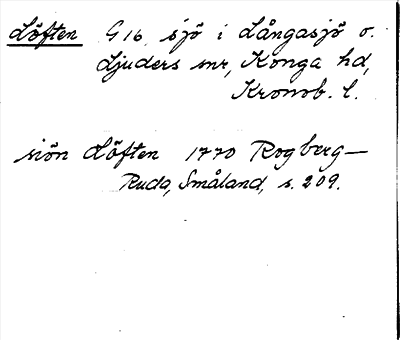 Löften G16 sjö i Långasjö o.
Ljuders snr, Konga hd,
Kronob. l.
siön Löften 1770 Rogberg—
Ruda, Småland, s. 209.